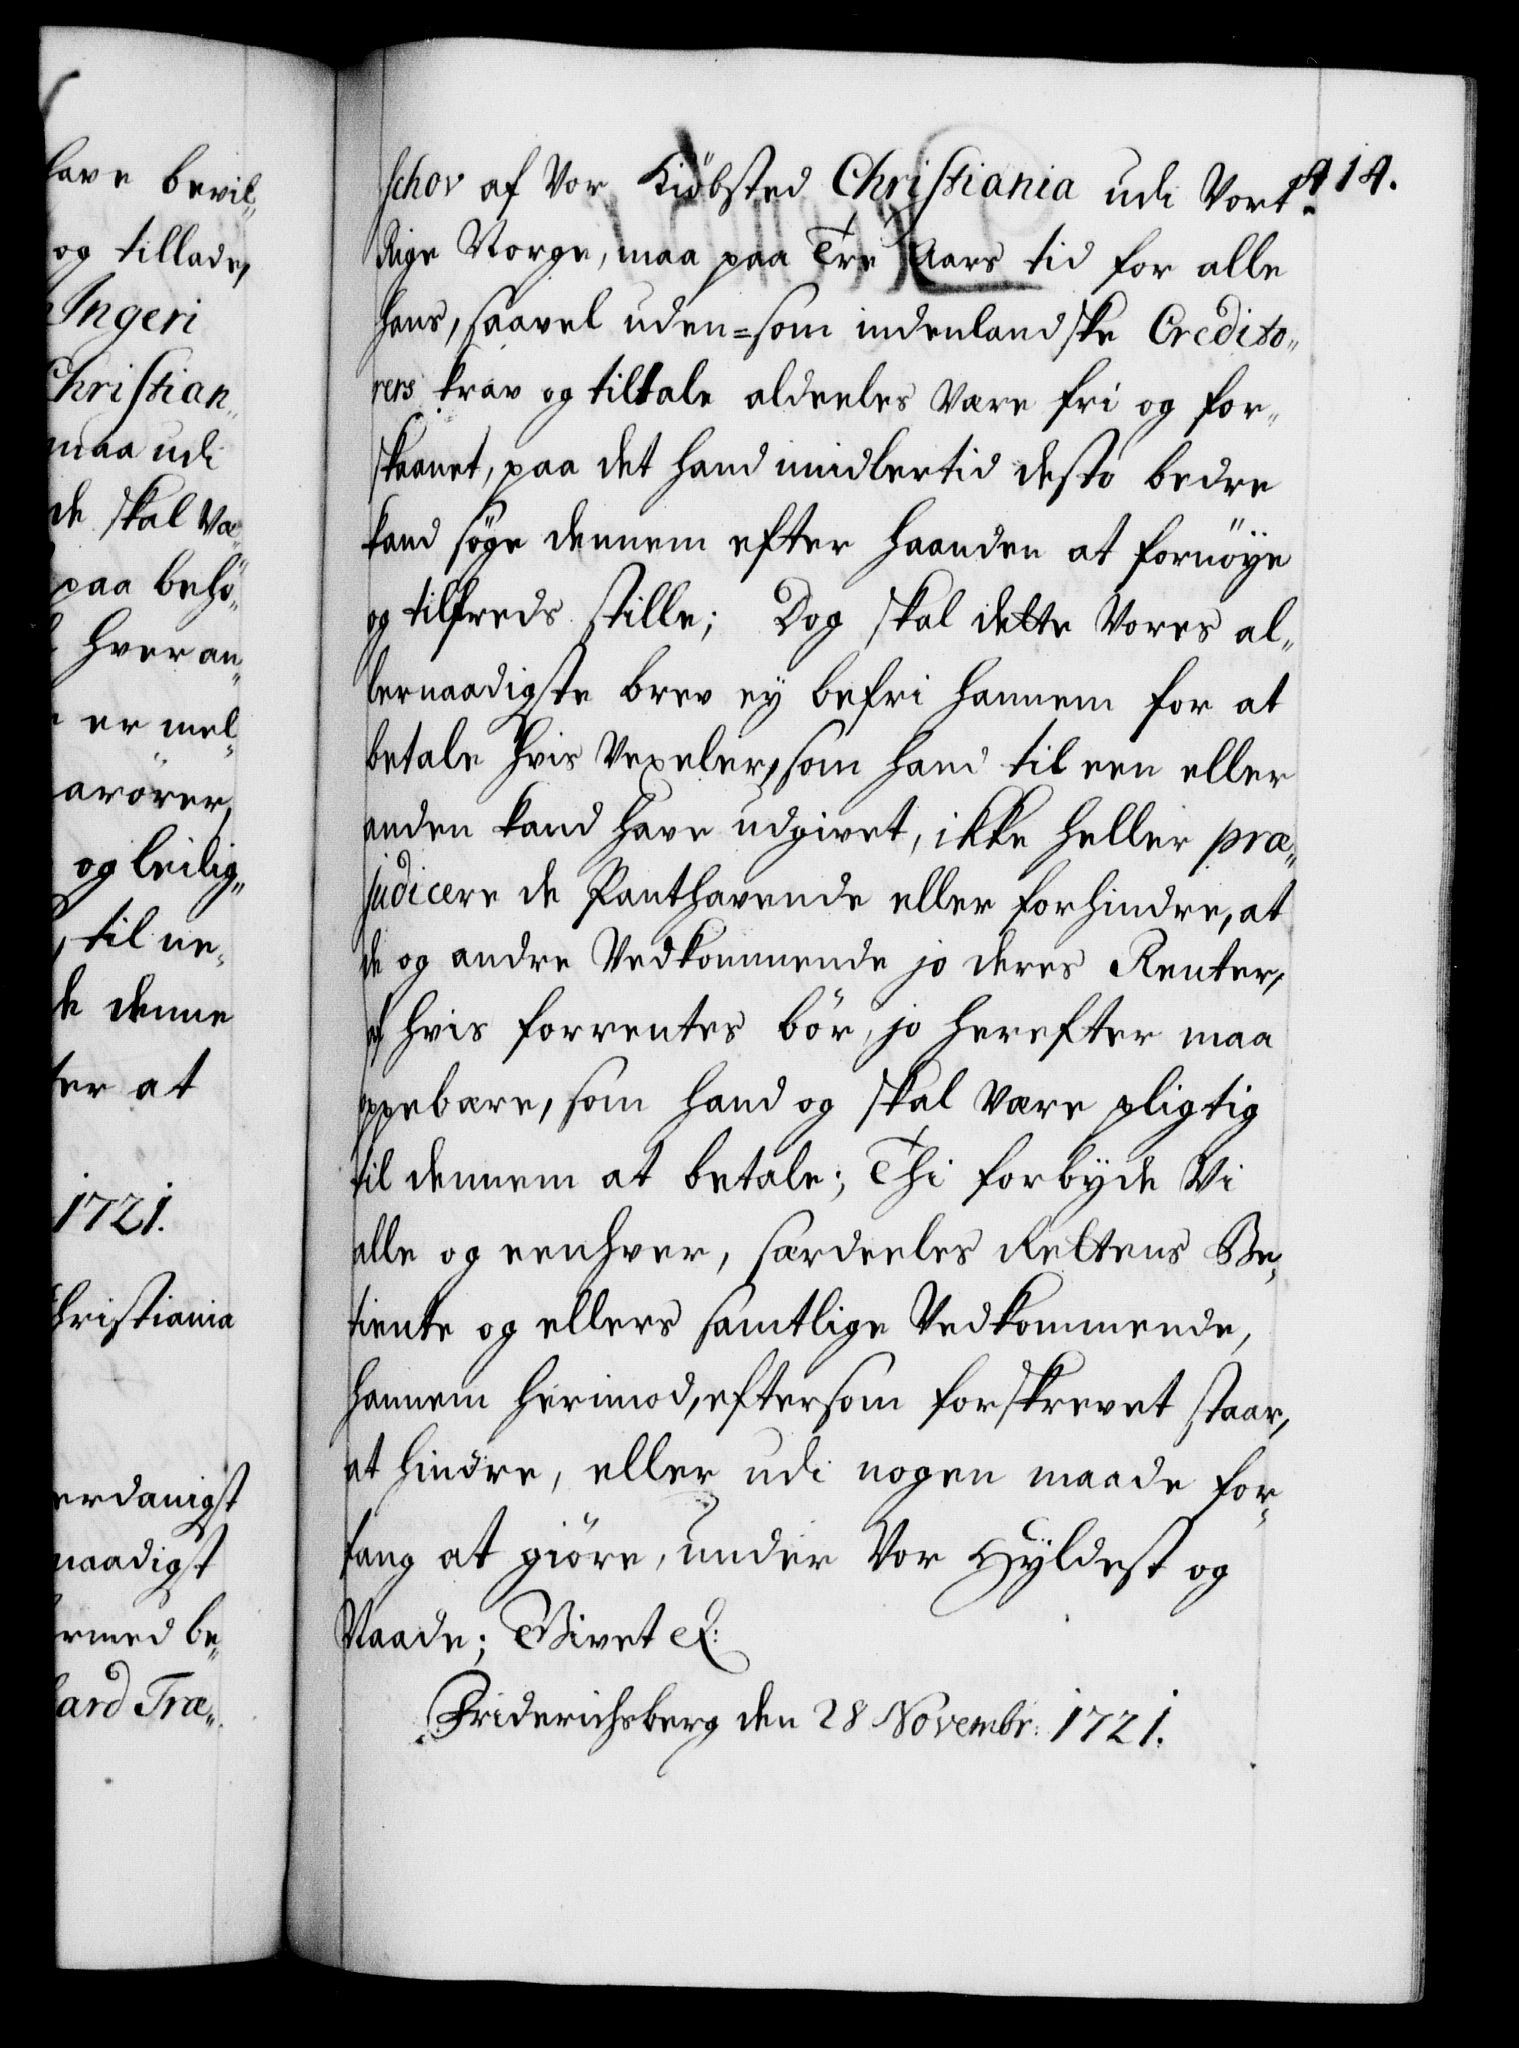 have bevil„
og tillade,
Ingeri
Christian„
maa udi
de skal væ„
paa behö„
hver an„
er mel„
arörer,
og leilig„
til ne„
de denne
ter at
1721.
Christiania
erdanigst
naadigst
ermed be„
hard Træ„
414.
schov af Vor Kiöbsted Christiania udi Vort
Rige Norge, maa paa Tre Aars tid for alle
hans, saavel uden= som indenlandske Credito„
rers krav og tiltale aldeeles være fri og for„
skaanet, paa det hand imidlertid desto bedre
kand söge dennem efter haanden at fornöye
og tilfreds stille; Dog skal dette Vores al„
lernaadigste brev ey befri hannem for at
betale hvis Vexeler, som hand til een eller
anden kand have udgivet, ikke heller præ„
judicere de Panthavende eller forhindre, at
de og andre Vedkommende jo deres Renter,
af hvis forrentes bör, jo herefter maa
oppebære, som hand og skal være pligtig
til dennem at betale; Thi forbyde Vi
alle og eenhver, særdeeles Rettens Be„
tiente og ellers samtlige Vedkommende,
hannem herimod, eftersom forskrevet staar,
at hindre, eller udi nogen maade for„
fang at giöre, under Vor Hyldest og
Naade; Givet &:
Friderichsberg den 28 Novembr: 1721.